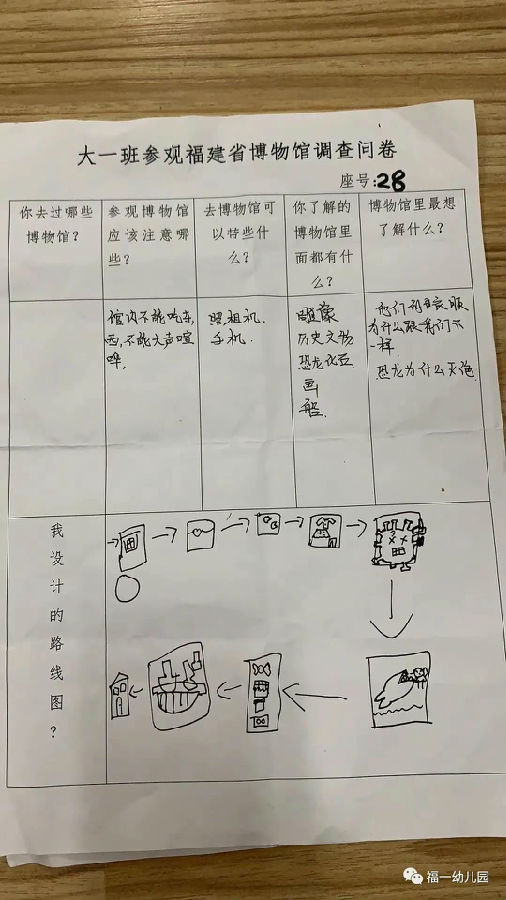 大一班参观福建省博物馆调查问卷
座号:28
你去过哪些
博物馆？
参观博物馆
应该注意哪
些？
去博物馆可
以特些什
么？
你了解的
博物馆里
面都有什
么？
博物馆里最想
了解什么？
馆内不能吃东
西,不能大声喧
哗.
照相机.
手机.
雕像
历史文物
恐龙化石
画
船.
他们的衣服
为什么跟我们不
一样
恐龙为什么灭绝
我
设
计
的
路
线
图
？
福一幼儿园